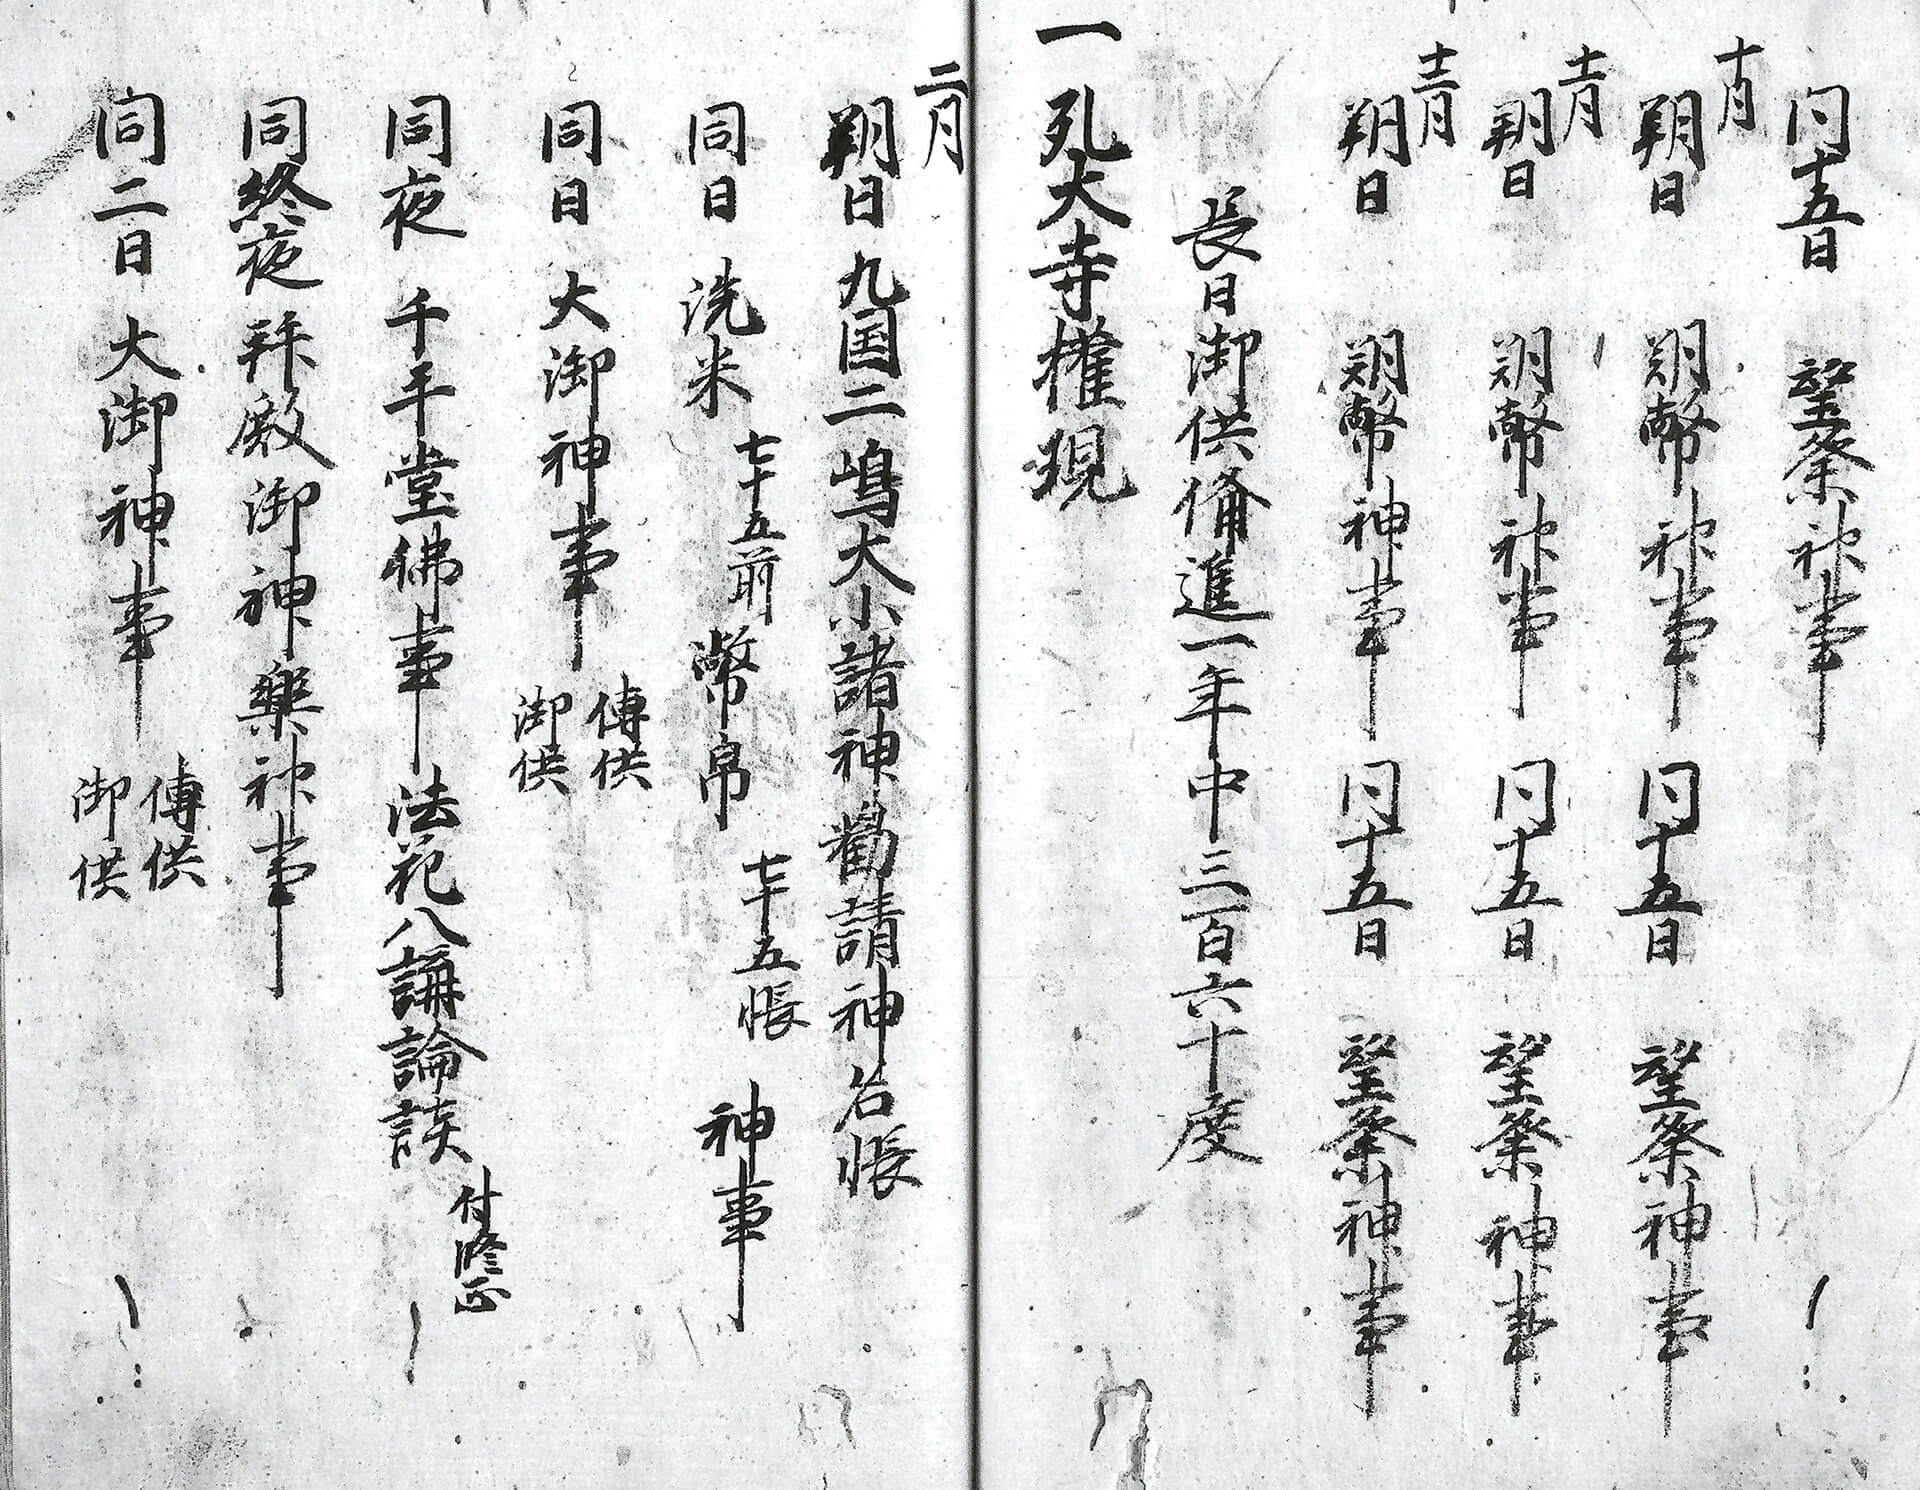 同十五日 望祭神事
十月 朔日 朔幣神事 同十五日 望祭神事
十一月 朔日 朔幣神事 同十五日 望祭神事
十二月 朔日 朔幣神事 同十五日 望祭神事
長日御供備進一年中三百六十度
一 孔大寺権現
二月 朔日 九国二嶋大小諸神勧請神名帳
同日 洗米 七十五前 幣帛 七十五帳 神事
同日 大御神事 傳供 御供
同夜 千手堂佛事 法花八講論談 付修正
同終夜 拜殿御神樂神事
同二日 大御神事 傳供 御供